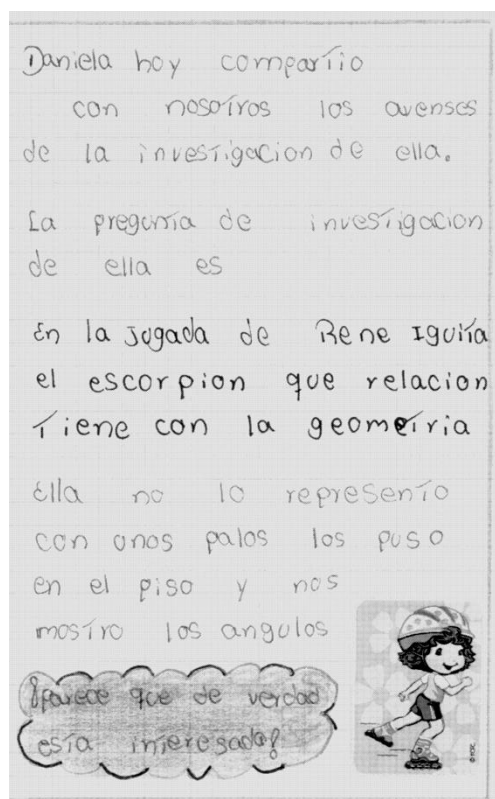 Daniela hoy compartio
con nosotros los avenses
de la investigacion de ella.
La pregunta de investigacion
de ella es
En la jugada de Rene Iguita
el escorpion que relacion
Tiene con la geometria
Ella no lo represento
con unos palos los puso
en el piso y nos
mostro los angulos
¡parece que de verdad
esta interesada!